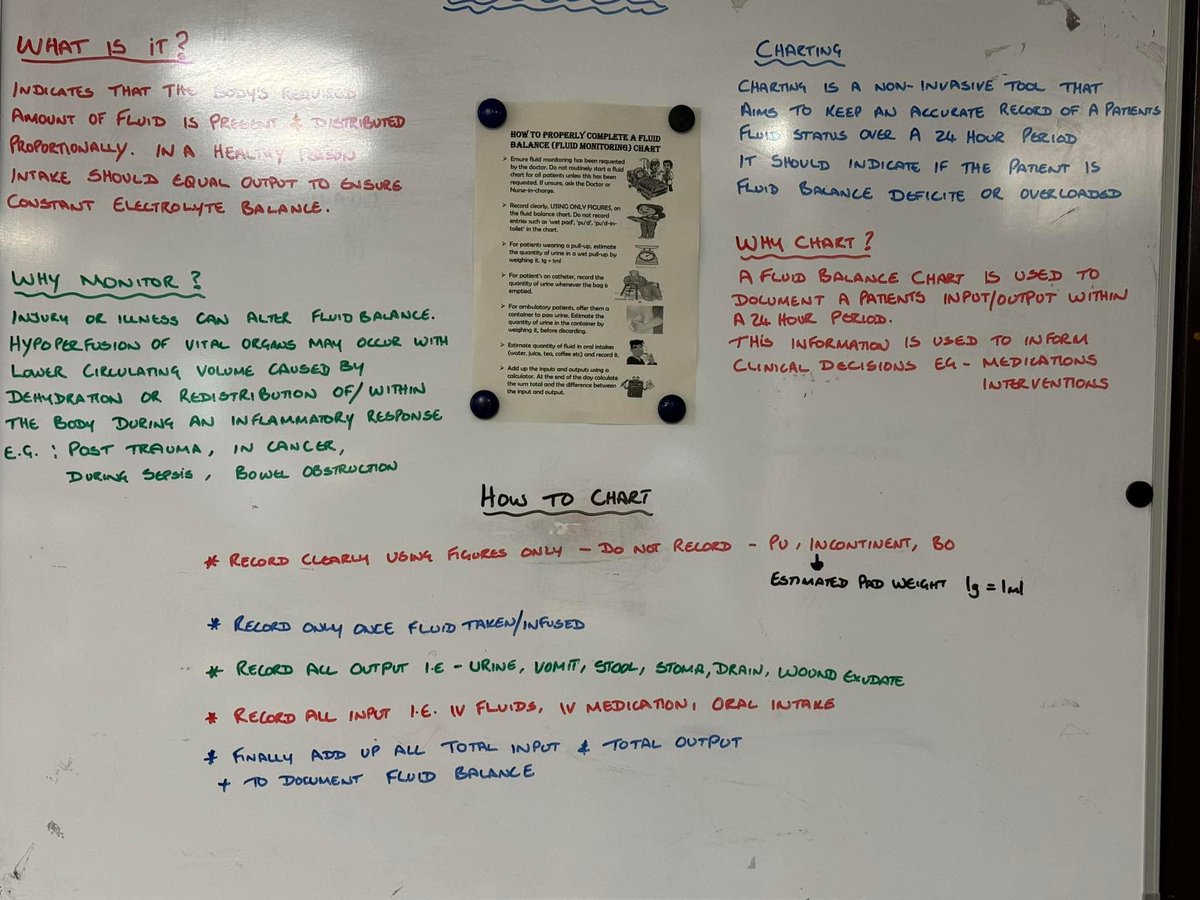 WHAT IS IT?
INDICATES THAT THE BODY'S REQUIRED
AMOUNT OF FLUID IS PRESENT & DISTRIBUTED
PROPORTIONALLY. IN A HEALTHY PERSON
INTAKE SHOULD EQUAL OUTPUT TO ENSURE
CONSTANT ELECTROLYTE BALANCE.
WHY MONITOR?
INJURY OR ILLNESS CAN ALTER FLUID BALANCE.
HYPOPERFUSION OF VITAL ORGANS MAY OCCUR WITH
LOWER CIRCULATING VOLUME CAUSED BY
DEHYDRATION OR REDISTRIBUTION OF/WITHIN
THE BODY DURING AN INFLAMMATORY RESPONSE
E.G. : POST TRAUMA, IN CANCER,
DURING SEPSIS, BOWEL OBSTRUCTION
HOW TO PROPERLY COMPLETE A FLUID
BALANCE (FLUID MONITORING) CHART
➤ Ensure fluid monitoring has been requested
by the doctor. Do not routinely start a fluid
chart for all patients unless this has been
requested. If unsure, ask the Doctor or
Nurse-in-charge.
➤ Record clearly, USING ONLY FIGURES, on
the fluid balance chart. Do not record
entries such as 'wet pad', 'pu'd', 'pu'd-in-
toilet' in the chart.
➤ For patients wearing a pull-up, estimate
the quantity of urine in a wet pull-up by
weighing it. 1g = 1ml
➤ For patient's on catheter, record the
quantity of urine whenever the bag is
emptied.
➤ For ambulatory patients, offer them a
container to pass urine. Estimate the
quantity of urine in the container by
weighing it, before discarding.
➤ Estimate quantity of fluid in oral intakes
(water, juice, tea, coffee etc) and record it.
➤ Add up the inputs and outputs using a
calculator. At the end of the day calculate
the sum total and the difference between
the input and output.
CHARTING
CHARTING IS A NON-INVASIVE TOOL THAT
AIMS TO KEEP AN ACCURATE RECORD OF A PATIENTS
FLUID STATUS OVER A 24 HOUR PERIOD
IT SHOULD INDICATE IF THE PATIENT IS
FLUID BALANCE DEFICITE OR OVERLOADED
WHY CHART?
A FLUID BALANCE CHART IS USED TO
DOCUMENT A PATIENTS INPUT/OUTPUT WITHIN
A 24 HOUR PERIOD.
THIS INFORMATION IS USED TO INFORM
CLINICAL DECISIONS EG - MEDICATIONS
INTERVENTIONS
HOW TO CHART
* RECORD CLEARLY USING FIGURES ONLY - DO NOT RECORD - PU, INCONTINENT, BO
ESTIMATED PAD WEIGHT 1g = 1ml
* RECORD ONLY ONCE FLUID TAKEN/INFUSED
* RECORD ALL OUTPUT I.E - URINE, VOMIT, STOOL, STOMA, DRAIN, WOUND EXUDATE
* RECORD ALL INPUT I.E. IV FLUIDS, IV MEDICATION, ORAL INTAKE
* FINALLY ADD UP ALL TOTAL INPUT & TOTAL OUTPUT
+ TO DOCUMENT FLUID BALANCE